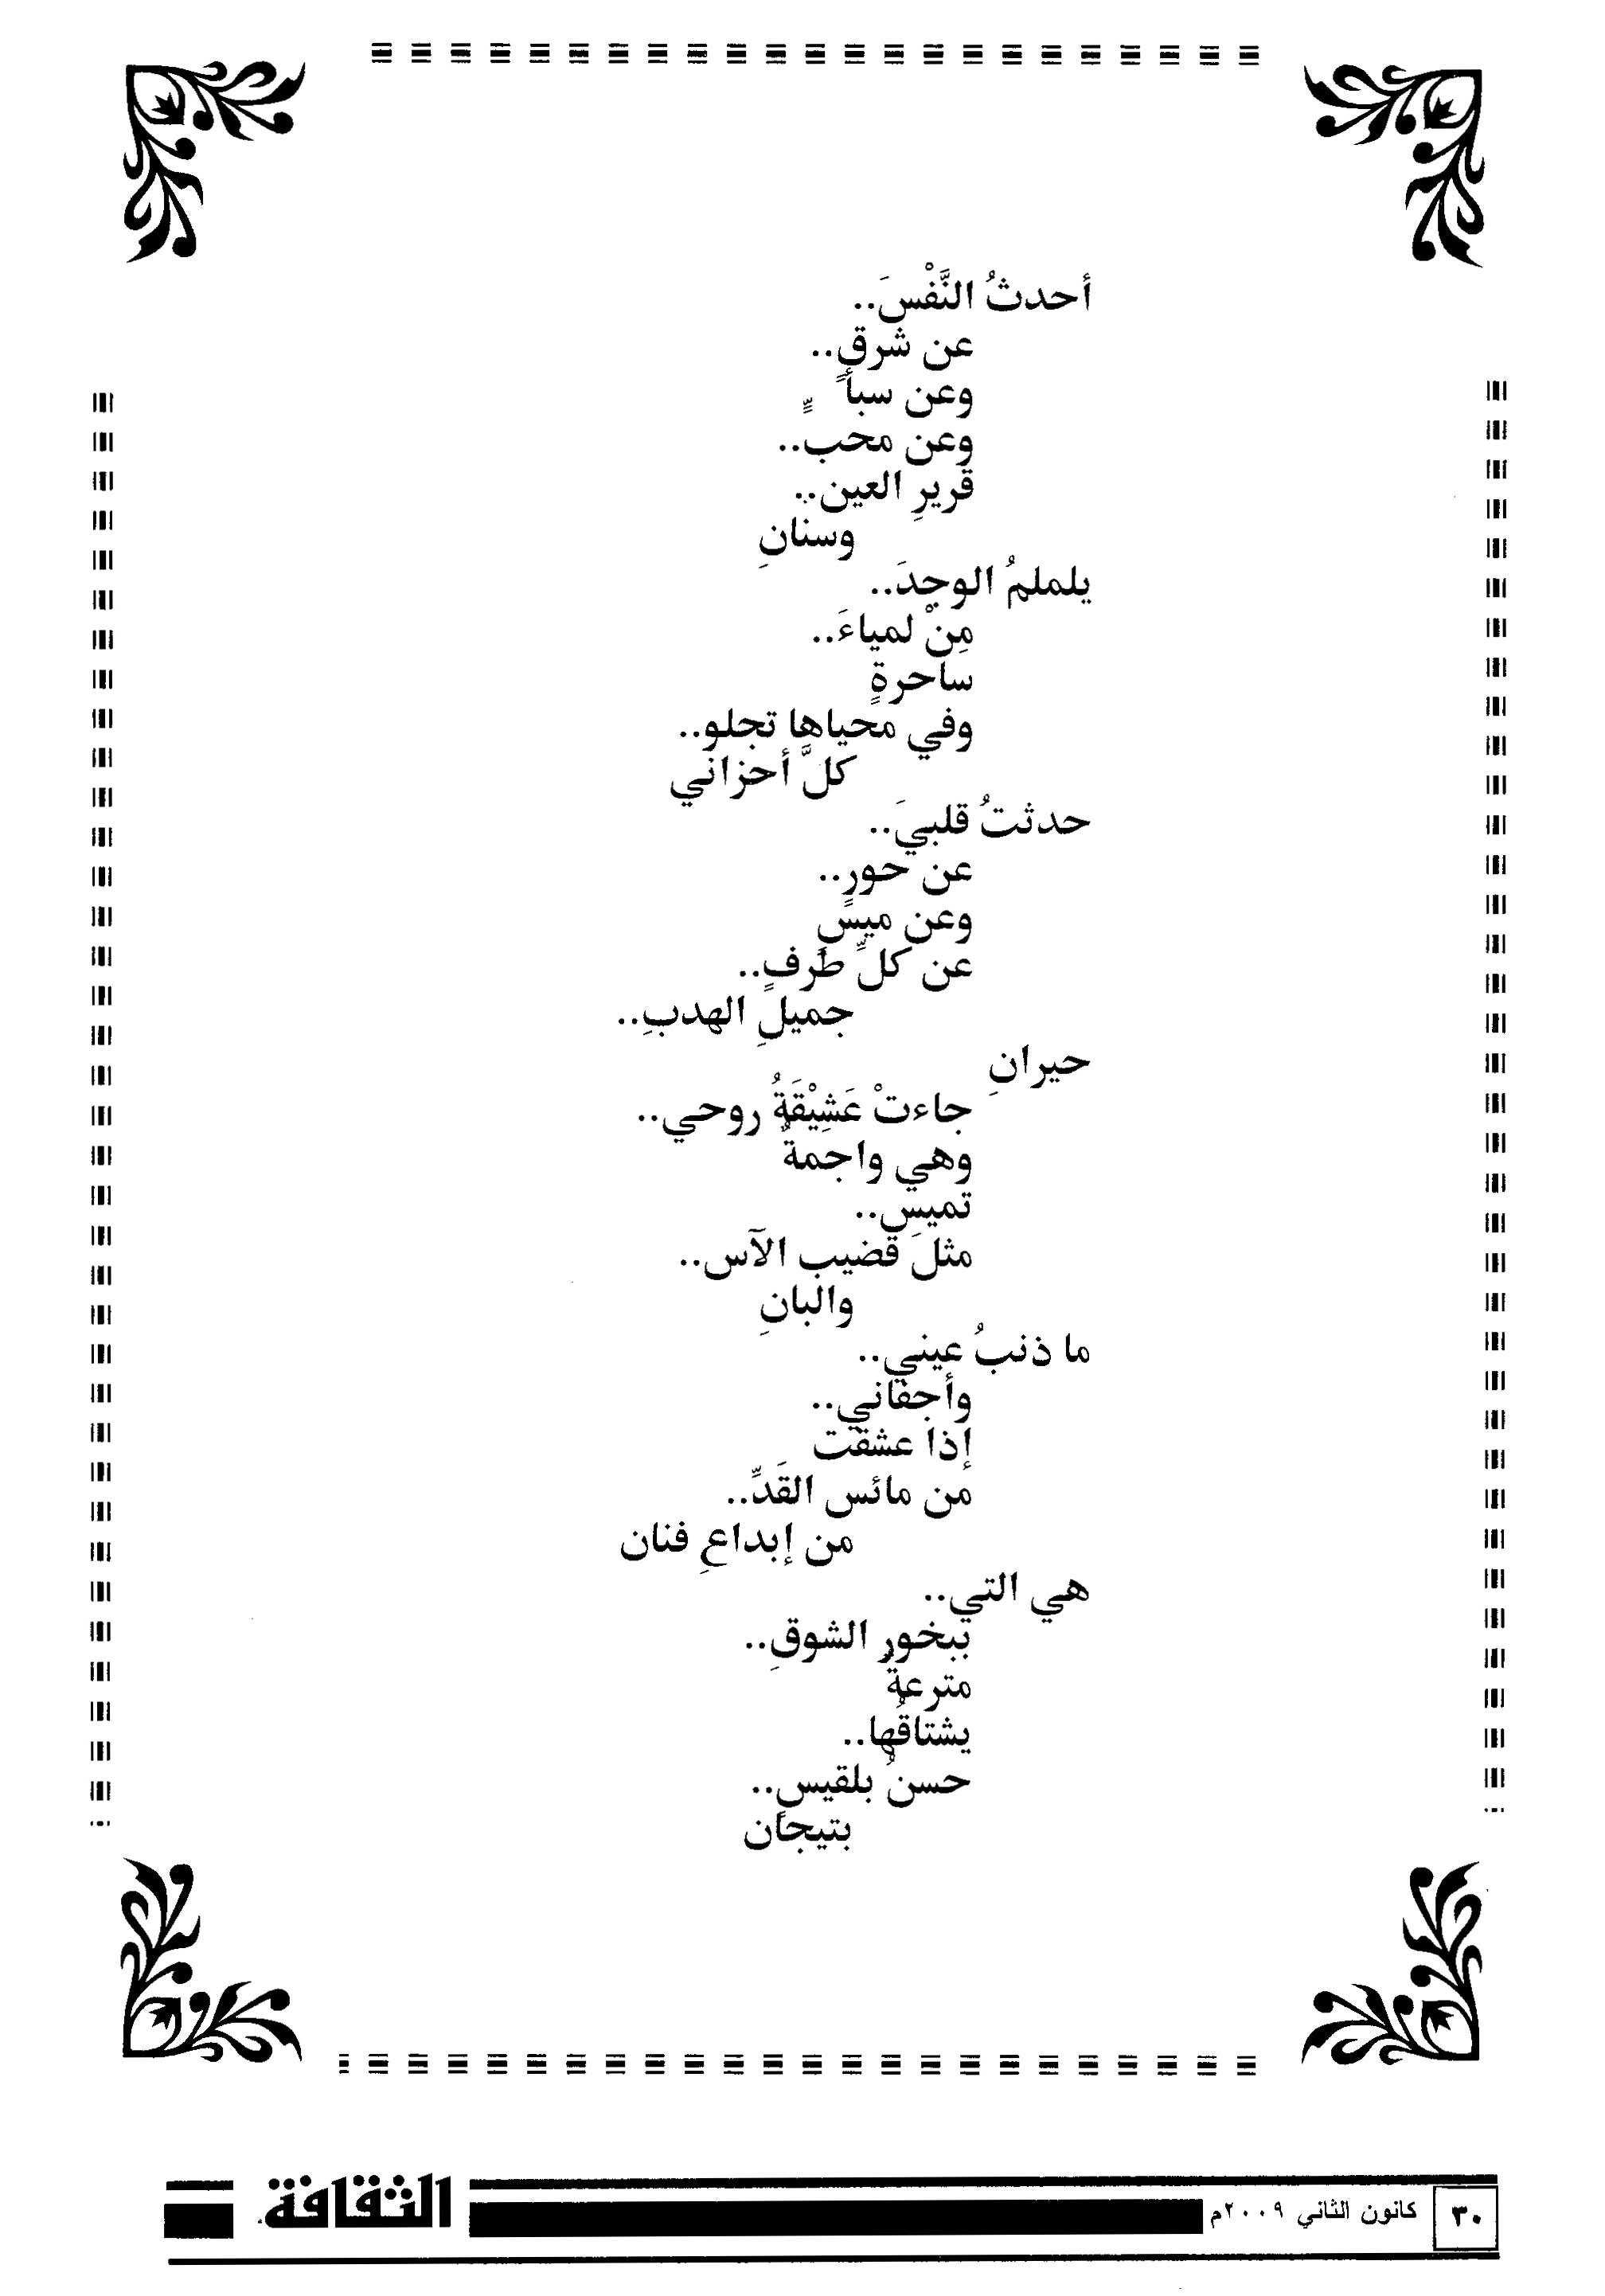 أحدثُ النَّفْسَ..
عن شرقٍ..
وعن سبأٍ
وعن محبٍّ..
قريرِ العين..
وسنانِ
يلملمُ الوجدَ..
مِنْ لمياءَ..
ساحرةٍ
وفي محياها تجلو..
كلَّ أحزاني
حدثتُ قلبيَ..
عن حورٍ..
وعن ميسٍ
عن كلِّ طَرفٍ..
جميلِ الهدبِ..
حيرانِ
جاءتْ عَشِيْقَةُ روحي..
وهي واجمةٌ
تميس..
مثلَ قضيب الآس..
والبانِ
ما ذنبُ عيني..
وأجفاني..
إذا عشقت
من مائس القَدِّ..
من إبداعِ فنان
هي التي..
ببخورِ الشوقِ..
مترعةٌ
يشتاقُها..
حسنُ بلقيسٍ..
بتيجان
٣٠ كانون الثاني ٢٠٠٩م الثقافة